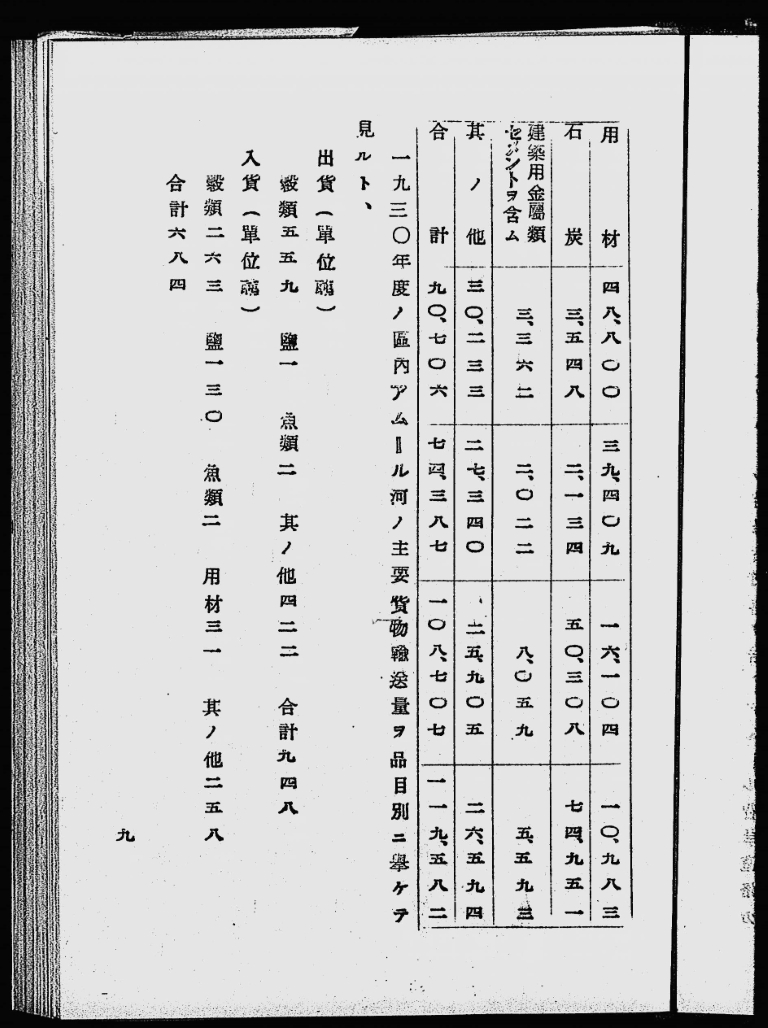 用材 四八、八〇〇 三九、四〇九 一六、一〇四 一〇、九八三
石炭 三、五四八 二、一三四 五〇、三〇八 七四、九五一
建築用金屬類
セメントヲ含ム 三、三六二 二、〇二二 八、〇五九 五、五九三
其ノ他 三〇、二三三 二七、三四〇 二五、九〇五 二六、五九四
合計 九〇、七〇六 七四、三八七 一〇八、七〇七 一一九、五八二
一九三〇年度ノ區內アムール河ノ主要貨物輸送量ヲ品目別ニ擧ケテ
見ルト、
出貨(單位瓲)
穀類五五九 鹽一 魚類二 其ノ他四二二 合計九四八
入貨(單位瓲)
穀類二六三 鹽一三〇 魚類二 用材三一 其ノ他二五八
合計六八四
九